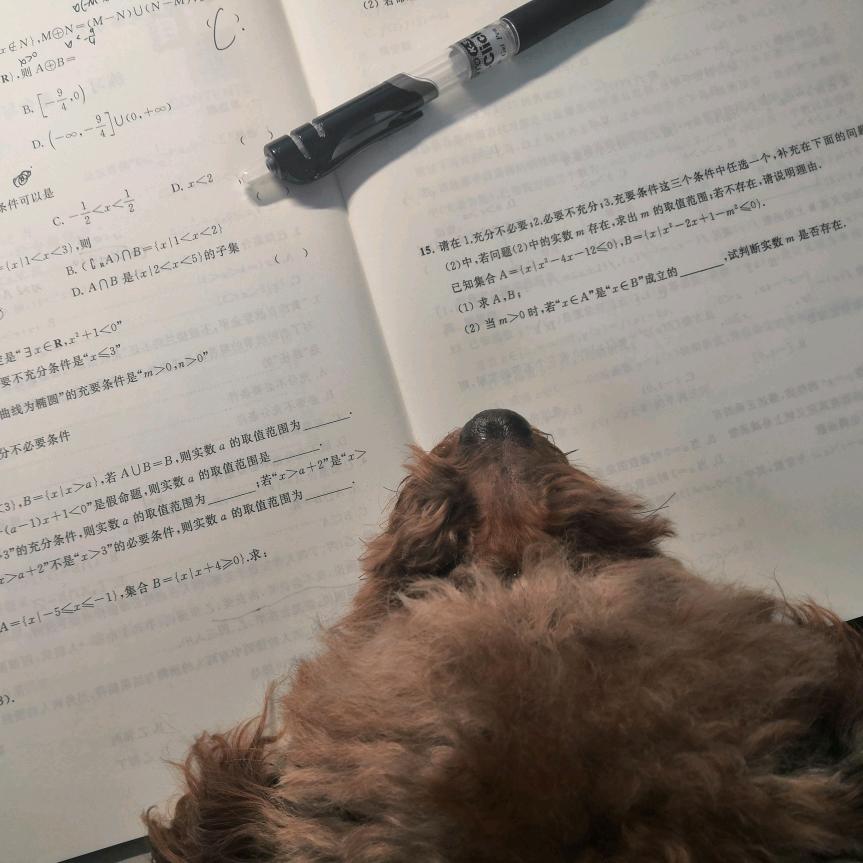 x∉N},M⊕N=(M-N)∪(N-M)
R},则 A⊕B=
B. [-9/4,0)
D. (-∞,-9/4]∪(0,+∞)
( )
条件可以是
C. -1/2<x<1/2
D. x<2
={x|1<x<3},则
B. (∁RA)∩B={x|1<x<2}
D. A∩B 是{x|2<x<5}的子集
( )
定是“∃x∈R,x²+1<0”
要不充分条件是“x≤3”
曲线为椭圆”的充要条件是“m>0,n>0”
分不必要条件
<3},B={x|x>a},若 A∪B=B,则实数 a 的取值范围为______.
(a-1)x+1<0”是假命题,则实数 a 的取值范围是______.
3”的充分条件,则实数 a 的取值范围为______;若“x>a+2”是“x>
x>a+2”不是“x>3”的必要条件,则实数 a 的取值范围为______.
A={x|-5≤x≤-1},集合 B={x|x+4≥0}.求:
3).
C.
Click
15. 请在 1.充分不必要;2.必要不充分;3.充要条件这三个条件中任选一个,补充在下面的问题
(2)中,若问题(2)中的实数 m 存在,求出 m 的取值范围;若不存在,请说明理由.
已知集合 A={x|x²-4x-12≤0},B={x|x²-2x+1-m²≤0}.
(1) 求 A,B;
(2) 当 m>0 时,若“x∈A”是“x∈B”成立的______,试判断实数 m 是否存在.